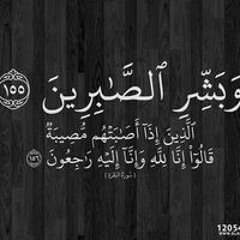 وَبَشِّرِ ٱلصَّـٰبِرِينَ ١٥٥
ٱلَّذِينَ إِذَآ أَصَـٰبَتْهُم مُّصِيبَةٌ
قَالُوٓا۟ إِنَّا لِلَّهِ وَإِنَّآ إِلَيْهِ رَٰجِعُونَ ١٥٦
(سورة البقرة)